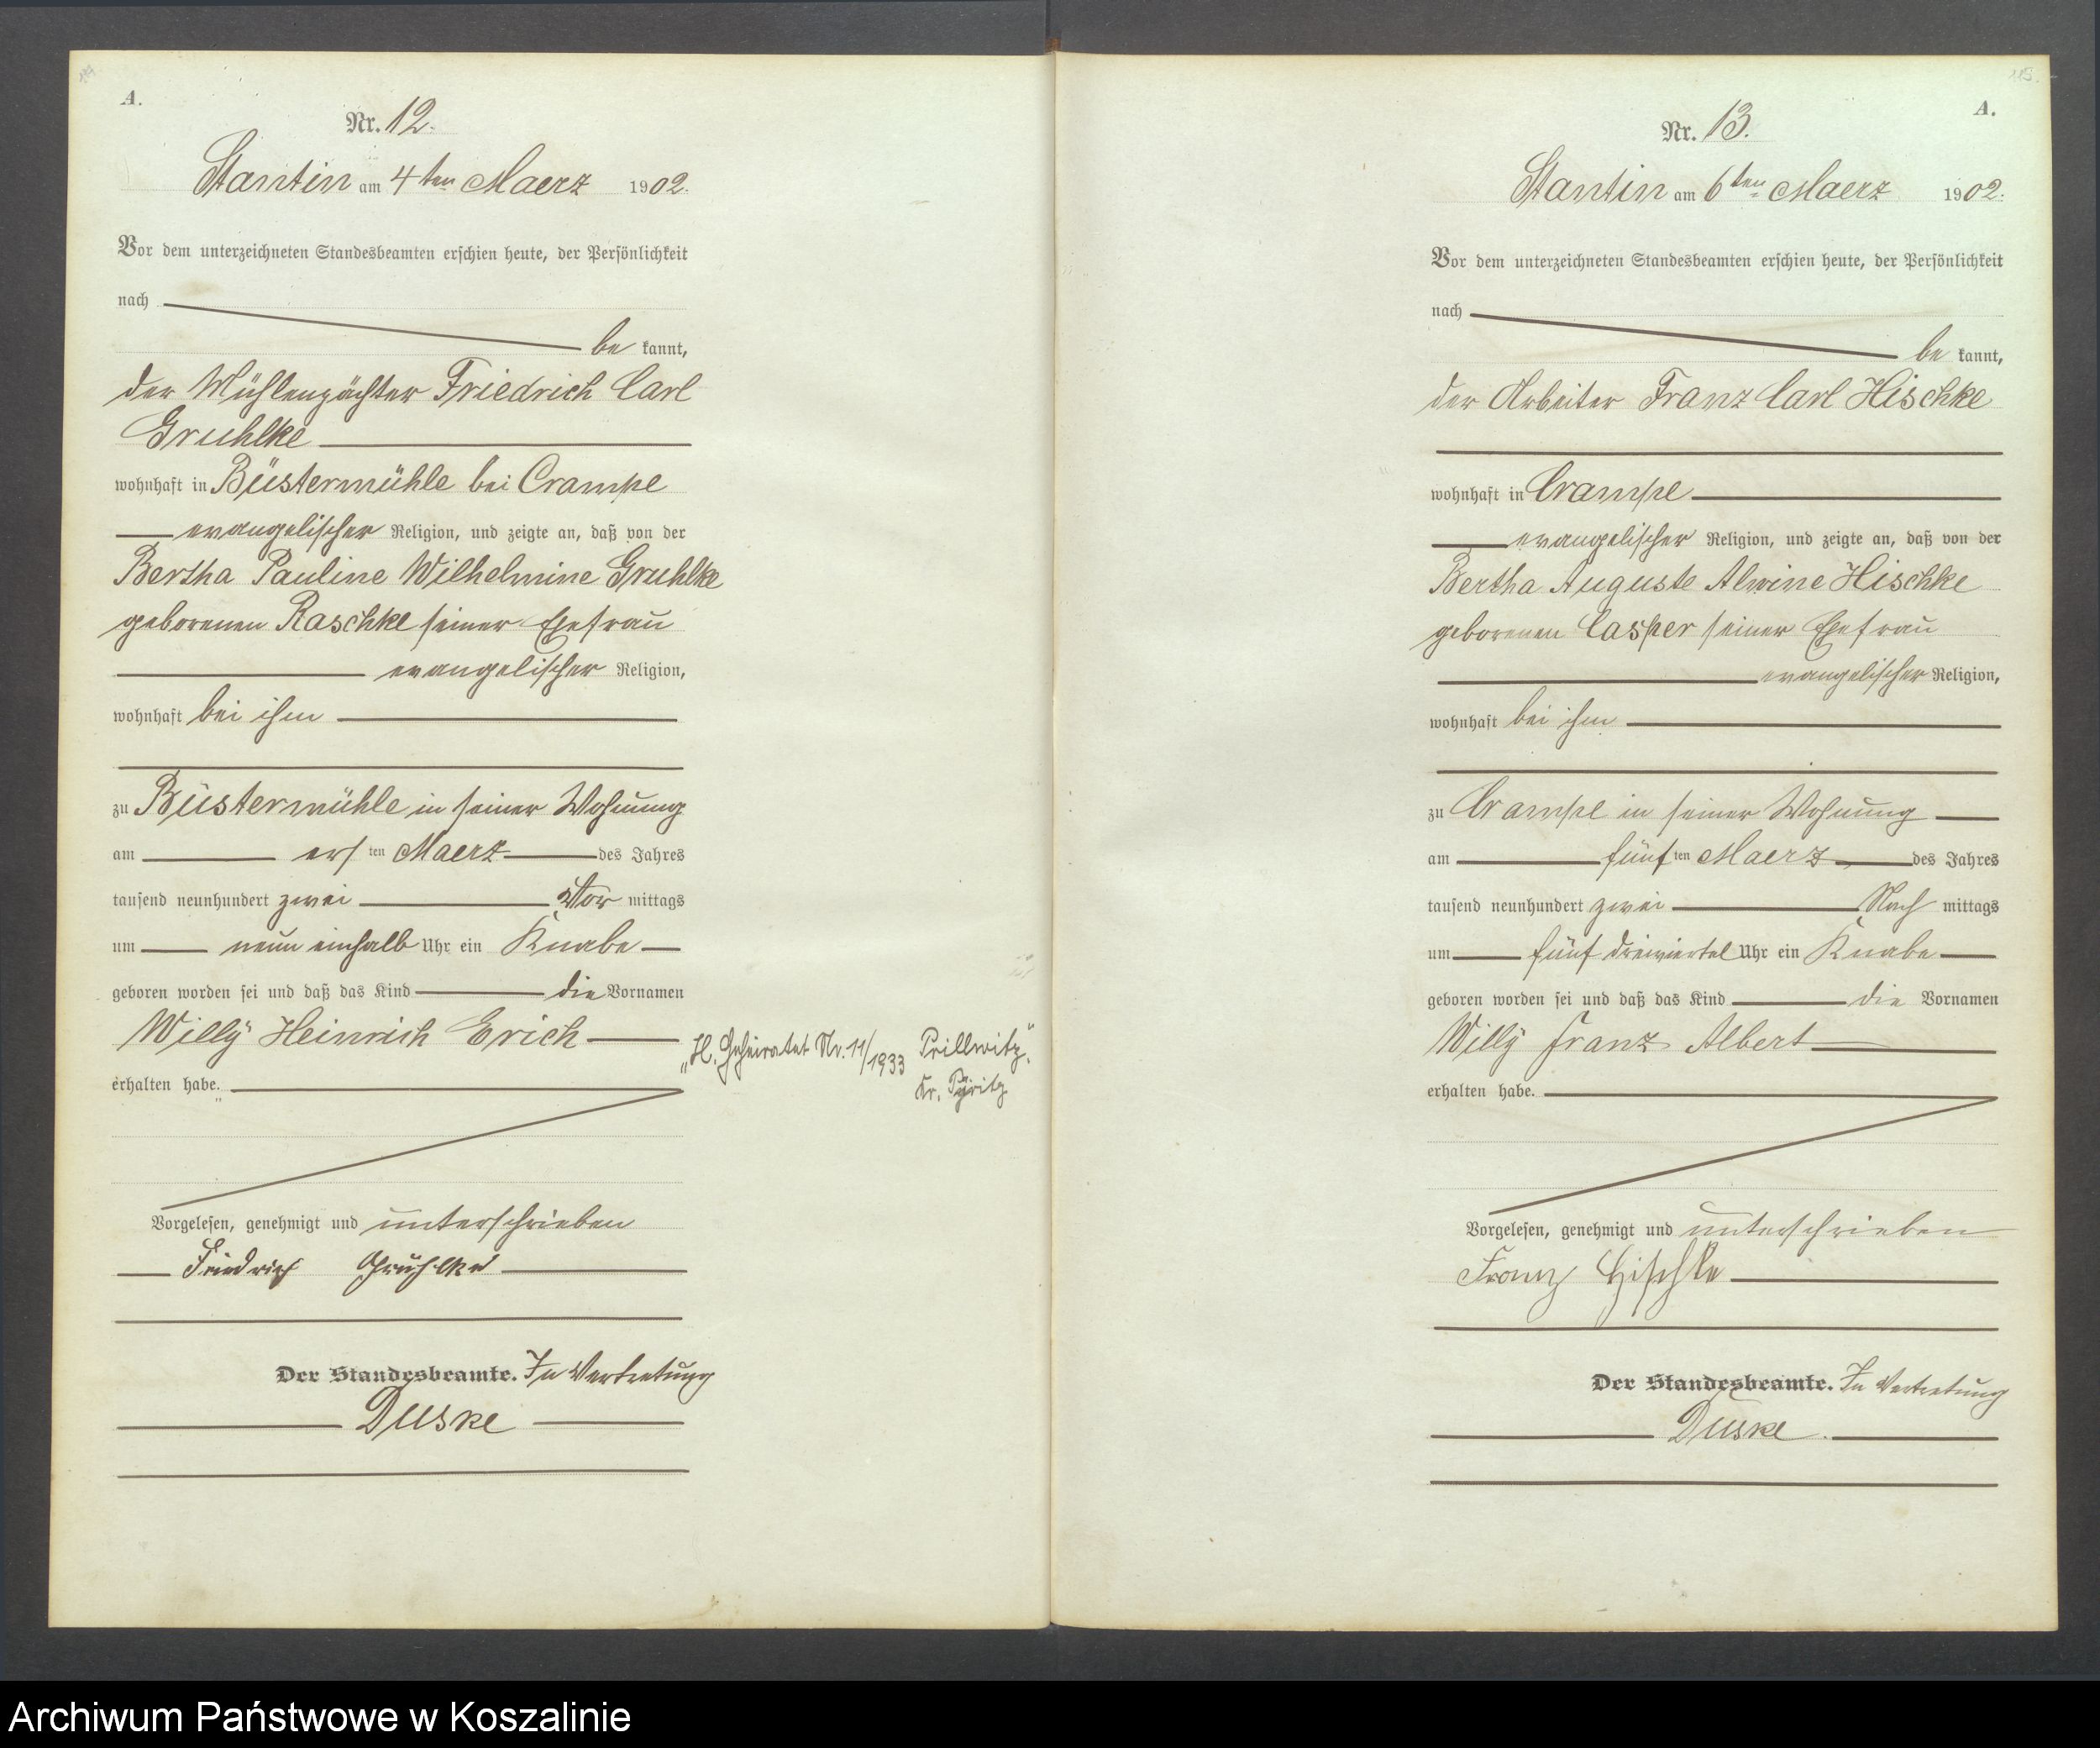 114.
A.
Nr. 12.
Stantin am 4ten Maerz 1902.
Vor dem unterzeichneten Standesbeamten erschien heute, der Persönlichkeit
nach
be kannt,
der Mühlenpächter Friedrich Carl
Gruhlke
wohnhaft in Büstermühle bei Crampe
evangelischer Religion, und zeigte an, daß von der
Bertha Pauline Wilhelmine Gruhlke
geborenen Raschke seiner Ehefrau
evangelischer Religion,
wohnhaft bei ihm
zu Büstermühle in seiner Wohnung
am ersten Maerz des Jahres
tausend neunhundert zwei Vor mittags
um neun einhalb Uhr ein Knabe
geboren worden sei und daß das Kind die Vornamen
Willy Heinrich Erich
erhalten habe.
„H. Geheiratet Nr. 11/1933 Prillwitz“,
Kr. Pyritz
Vorgelesen, genehmigt und unterschrieben
Friedrich Gruhlke
Der Standesbeamte. In Vertretung
Duske
115.
A.
Nr. 13.
Stantin am 6ten Maerz 1902.
Vor dem unterzeichneten Standesbeamten erschien heute, der Persönlichkeit
nach
be kannt,
der Arbeiter Franz Carl Hischke
wohnhaft in Crampe
evangelischer Religion, und zeigte an, daß von der
Bertha Auguste Alwine Hischke
geborenen Casper seiner Ehefrau
evangelischer Religion,
wohnhaft bei ihm
zu Crampe in seiner Wohnung
am fünften Maerz des Jahres
tausend neunhundert zwei Nach mittags
um fünf dreiviertel Uhr ein Knabe
geboren worden sei und daß das Kind die Vornamen
Willy Franz Albert
erhalten habe.
Vorgelesen, genehmigt und unterschrieben
Franz Hischke
Der Standesbeamte. In Vertretung
Duske.
Archiwum Państwowe w Koszalinie